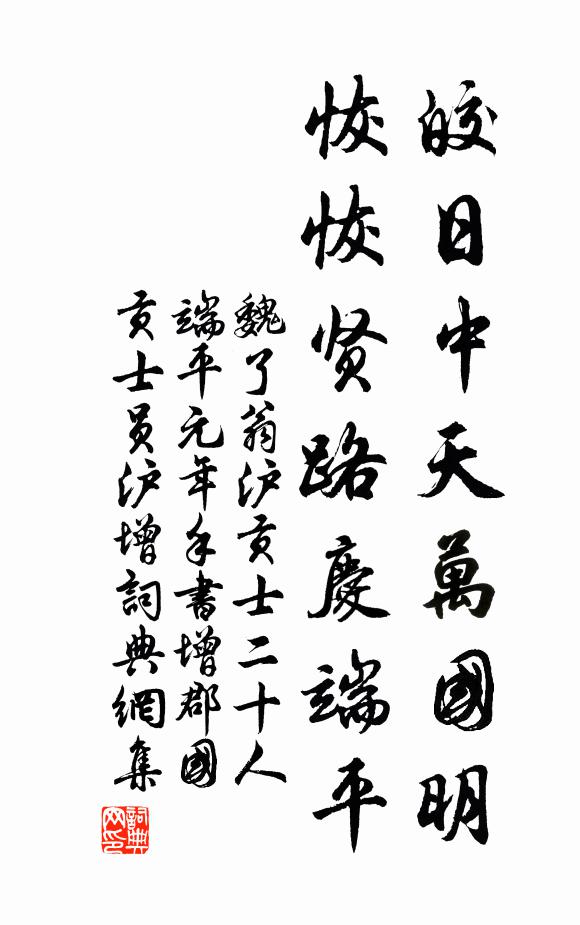 皎日中天萬國明
恢恢贤路慶端平
魏了翁沪贡士二十人
端平元年手書增郡國
贡士员沪增詞典網集
詞典网印